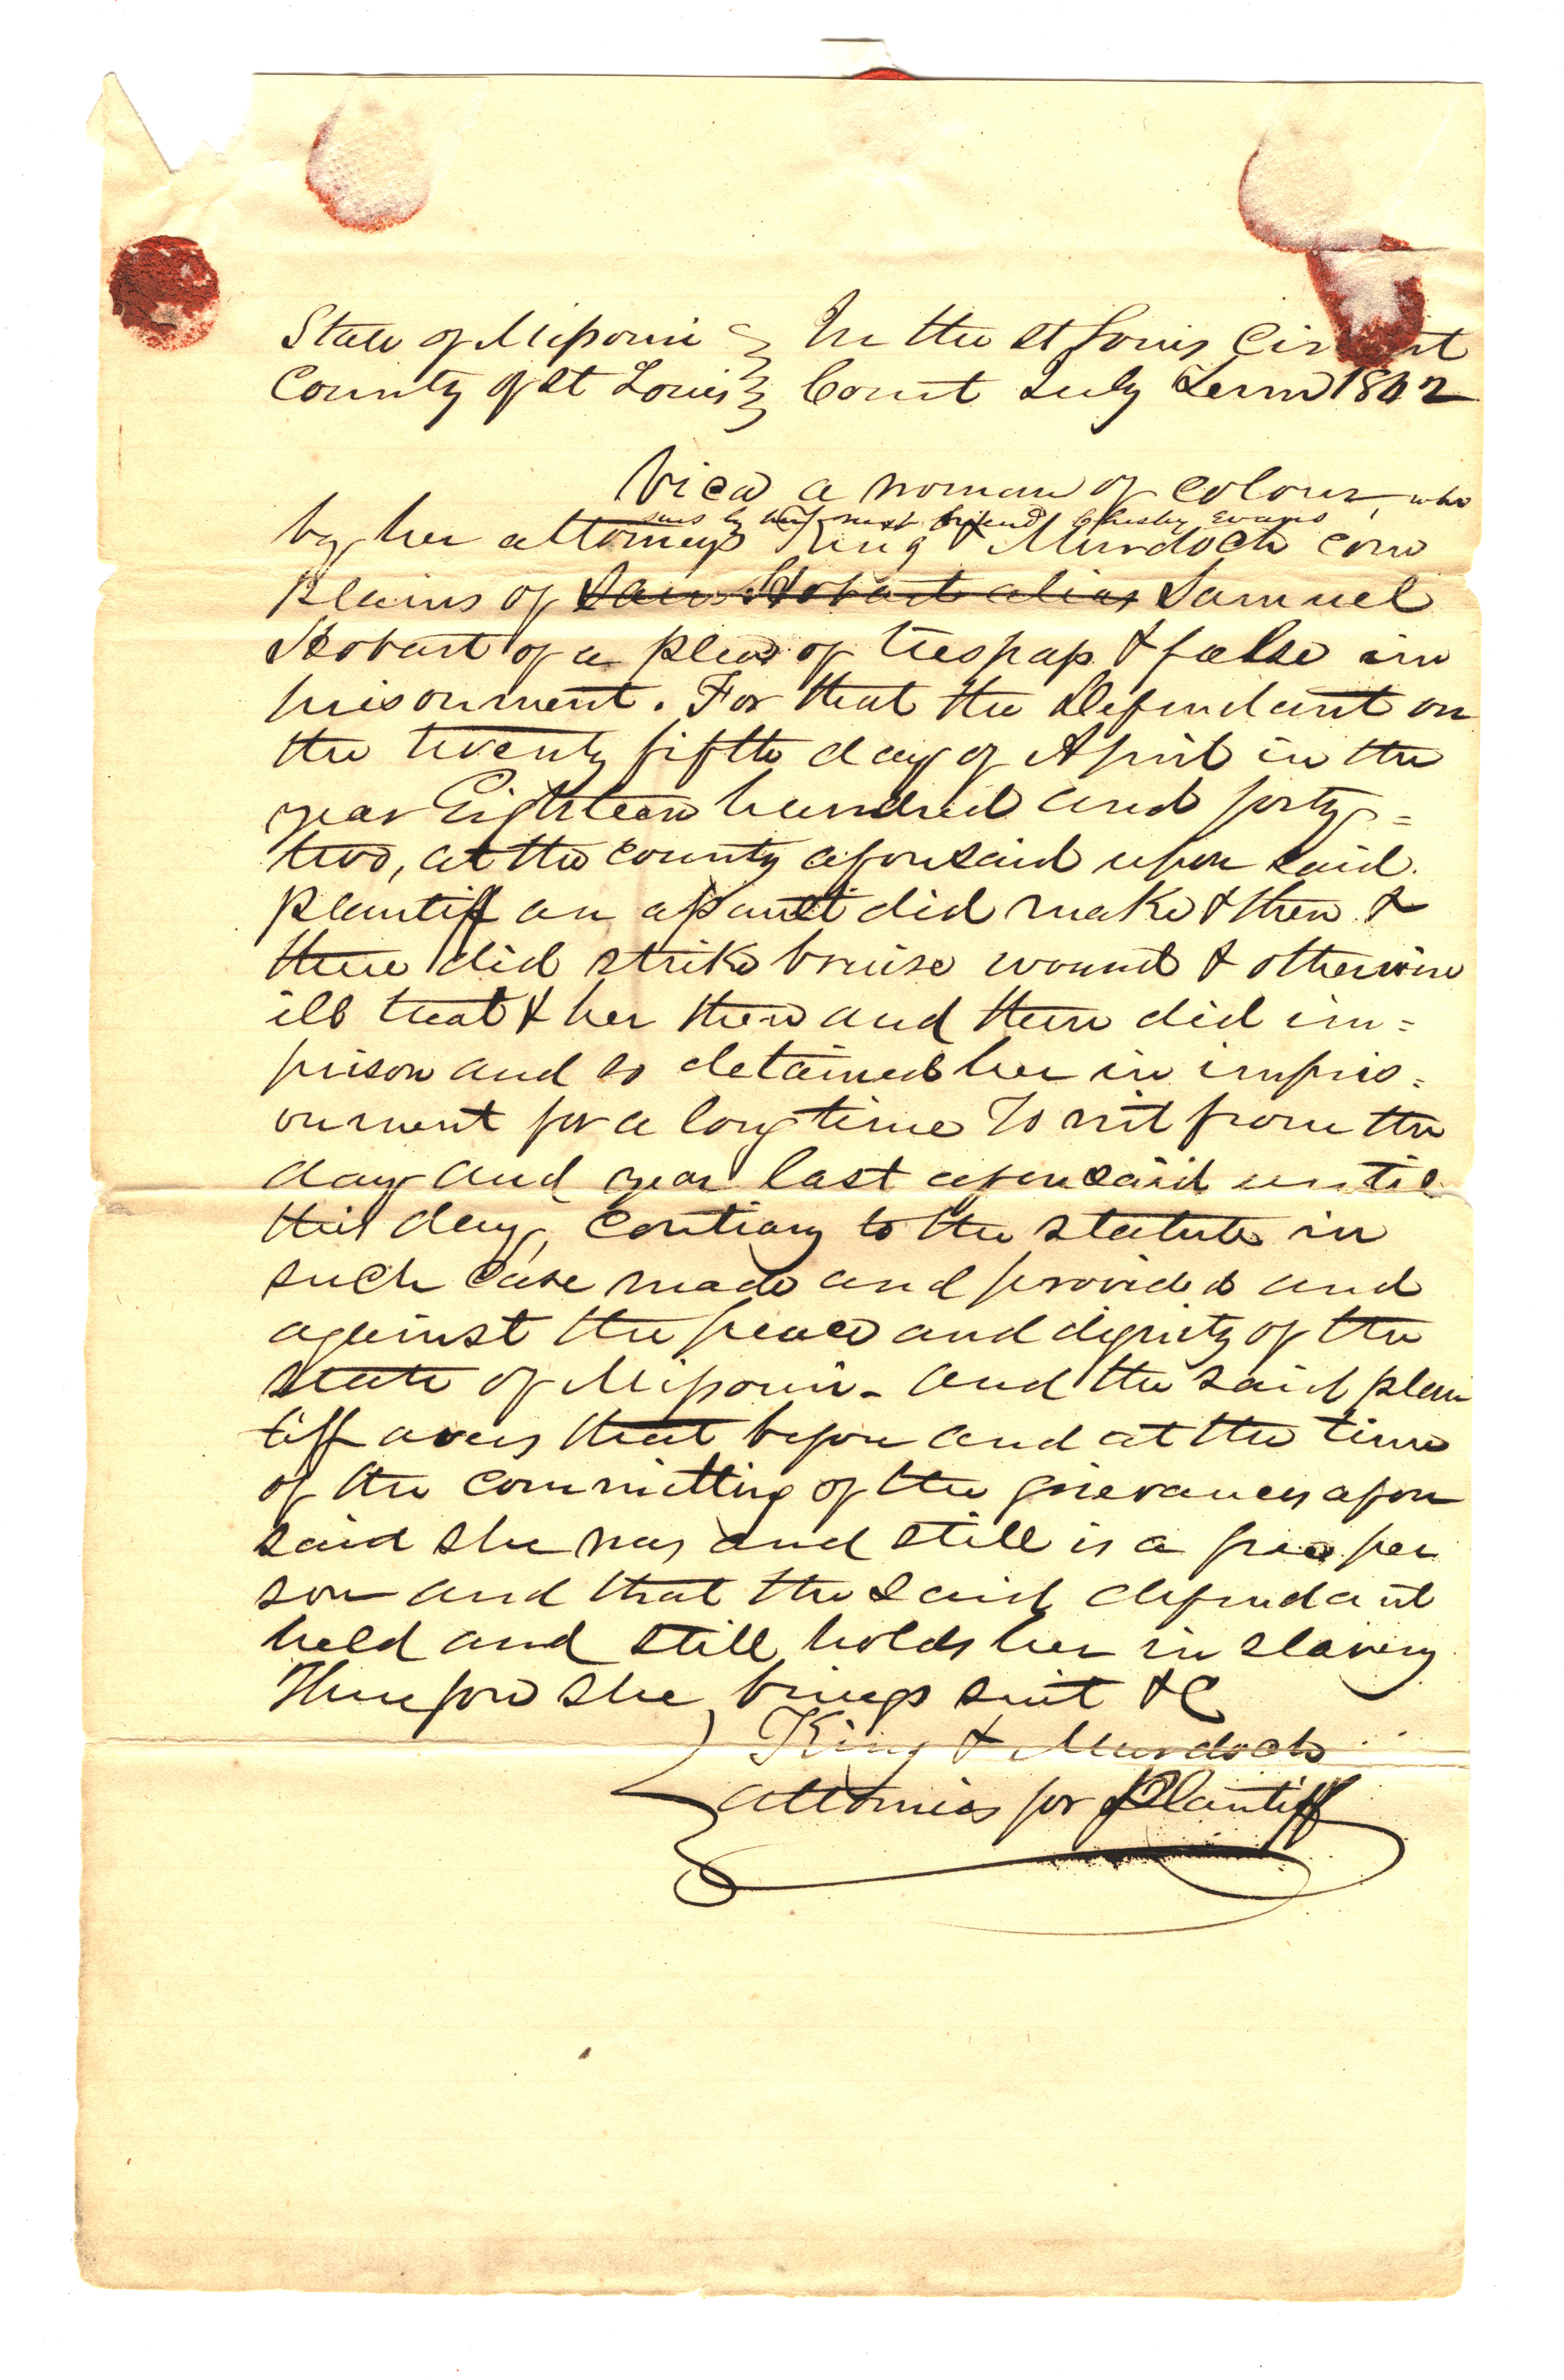 State of Missouri } In the St Louis Circuit
County of St Louis } Court July Term 1842
Vica a woman of colour, who
sues by her next friend Chesley Evans
by her attorneys King & Murdoch com
plains of Sam Hobart alias Samuel
Hobart of a plea of trespass & false im
prisonment. For that the Defendant on
the twenty fifth day of April in the
year Eighteen hundred and forty=
two, at the county aforesaid upon said
plantiff an assault did make & then &
there did strike bruise wound & otherwise
ill treat & her then and there did im=
prison and so detained her in impris=
onment for a long time To wit from the
day and year last aforesaid until
this day, contrary to the statute in
such case made and provided and
against the peace and dignity of the
state of Missouri - and the said plain
tiff avers that before and at the time
of the committing of the grievances afore
said she was and still is a free per
son and that the said defendant
held and still holds her in slavery
Therefore she brings suit &C
King & Murdoch
attornies for Plantiff